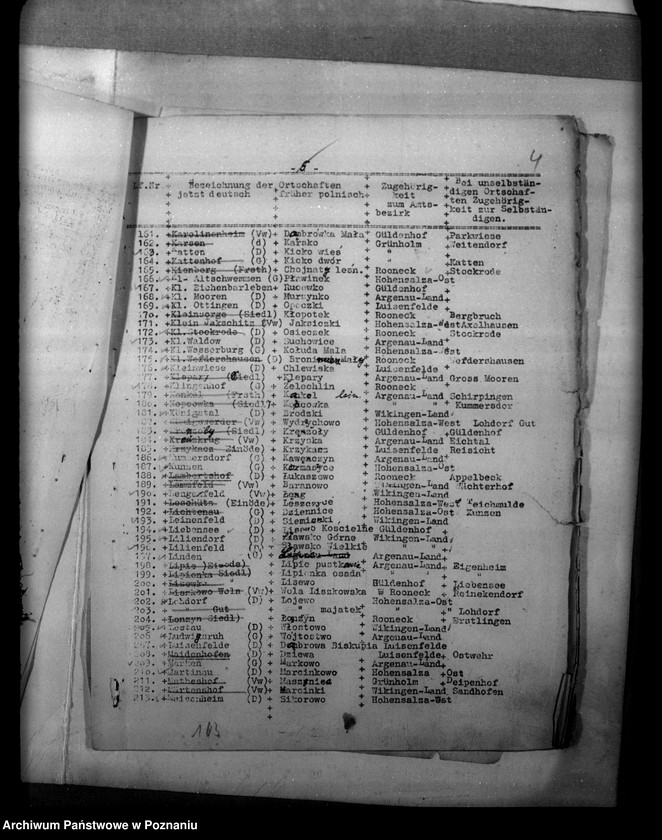 4
- 5 -
Lf.Nr + Bezeichnung der Ortschaften + Zugehörig- + Bei unselbstän-
jetzt deutsch + früher polnisch + keit + digen Ortschaf-
zum Amts- + ten Zugehörig-
bezirk + keit zur Selbstän-
digen.
161. + Karolinenheim (Vw)+ Dąbrowka Mała Güldenhof + Parkwiese
162. + Karsen (d) + Karsko Grünholm + Weitendorf
163. + Katten (D) + Kicko wieś " "
164. + Kattenhof (G) + Kicko dwór " + Katten
165. + Kienberg (Frsth) + Chojnaty leśn. Rooneck + Stockrode
166. + Kl. Altschwemmen (G) Pławinek Hohensalza-Ost
167. + Kl. Eichenbarleben + Rucewko Güldenhof
168. + Kl. Mooren (D) + Murzynko Argenau-Land
169. + Kl. Ottingen (D) + Opoczki Luisenfelde
170. + Kleinsorge (Siedl) Kłopotek Rooneck + Bergbruch
171. + Klein Jakschitz (Vw) Jaksiczki Hohensalza-West Axelhausen
172. + Kl. Stockrode (D) + Osieczek Rooneck + Stockrode
173. + Kl. Waldow (D) + Suchowice Argenau-Land
174. + Kl. Wasserburg (G) + Kołuda Mała Hohensalza-West
175. + Kl. Wefdershausen (D) Broniewo Rooneck Wefdershausen
176. + Kleinwiese (D) + Chlewiska Luisenfelde
177. + Klepary (Siedl) + Klepary Argenau-Land Gross Mooren
178. + Klingenhof (G) + Żelechlin Rooneck
179. + Konkel (Frsth) + leśn. Argenau-Land Schirpingen
180. + Kopcowka (Siedl) + " " Kummersdor
181. + Königstal (D) + Brodzki Wikingen-Land
182. (Vw) + Wydrychowo Hohensalza-West Lohdorf Gut
183. (Siedl) + Krężoły Güldenhof + Güldenhof
184. + Krenzkrug (Vw) + Krzyska Argenau-Land Eichtal
185. + Krzykacz Einöde) + Krzykacz Luisenfelde Reisicht
186. + Kummersdorf (G) + Kawęczyn Argenau-Land
187. + Kunsen (G) + Hohensalza-Ost
188. + Lambertshof (D) + Łukaszewo Rooneck Appelbeck
189. + Lamsfeld (Vw) + Baranowo Wikingen-Land Richterhof
190. + Lengefeld (Vw)+ Łęg Wikingen-Land
191. + Leschütz (Einöde)+ Leszczyce Hohensalza-West Teichmulde
192. + Lichtenau (G) + Dziennice Hohensalza-Ost Kunsen
193. + Leinenfeld (D) + Siemionki Wikingen-Land
194. + Liebensee (D) + Lisewo Kościelne Güldenhof
195. + Liliendorf (D) + Sławsko Górne Wikingen-Land
196. + Lilienfeld (D) + Sławsko Wielkie "
197. Linden (G) + Argenau-Land
198. + Lipie (Einöde) + Lipie pustkowie Argenau-Land Eigenheim
199. + Lipionka Siedl) + Lipionka osada " "
200. + Lisewko " + Lisewo Güldenhof + Liebensee
201. + Liszkowo Woln (Vw)+ Wola Liszkowska W Rooneck + Reinekendorf
202. + Lohdorf (D) + Lojewo Hohensalza-Ost
203. + " Gut + " majątek " + Lohdorf
204. + Lonzyn Siedl) + Łonżyn Rooneck + Erstlingen
205. + Lostau (D) + Włostowo Wikingen-Land
206. + Ludwigsruh (G) + Wojtostwo Argenau-Land
207. + Luisenfelde (D) + Dąbrowa Biskupia Luisenfelde
208. + Maidenhofen (D) + Dziewa Luisenfelde + Ostwehr
209. + Marken (G) + Markowo Argenau-Land
210. + Martinau (D) + Marcinkowo Hohensalza + Ost
211. + Matheshof (Vw) + Maszenice Grünholm + Deipenhof
212. + Martenshof (Vw) + Marcinki Wikingen-Land Sandhofen
213. + Maienheim (D) + Sikorowo Hohensalza-West
103
Archiwum Państwowe w Poznaniu